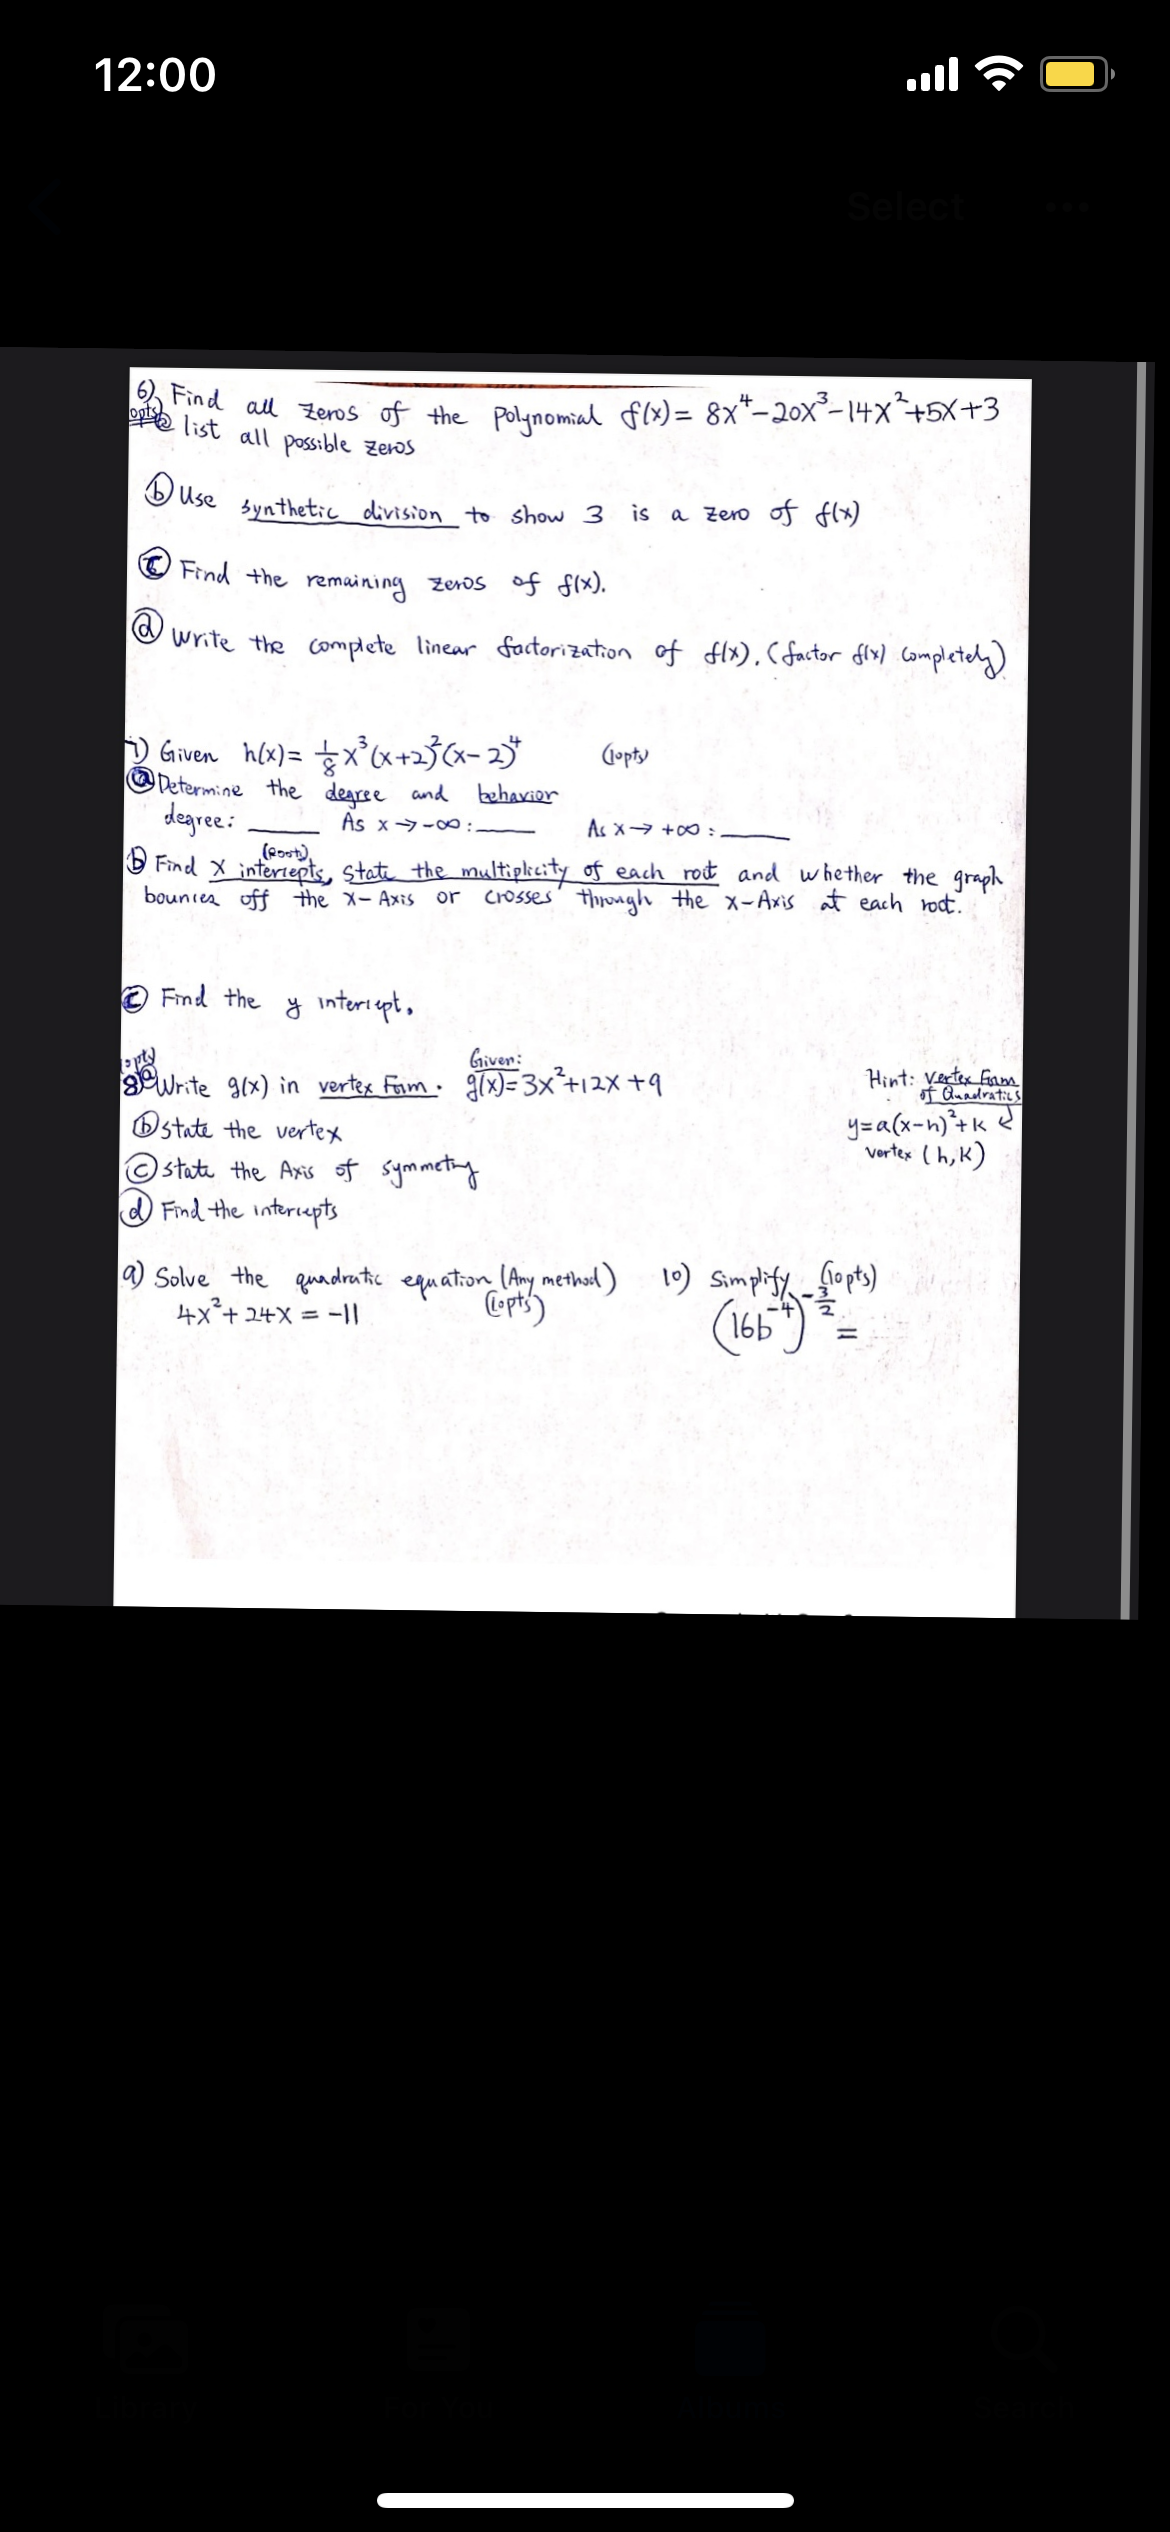 12:00
Select
6) Find all zeros of the polynomial f(x) = 8x⁴-20x³-14x²+5x+3
opts
ⓐ list all possible zeros
ⓑ Use synthetic division to show 3 is a zero of f(x)
ⓒ Find the remaining zeros of f(x).
ⓓ Write the complete linear factorization of f(x). (factor f(x) completely)
7) Given h(x) = 1/8 x³(x+2)²(x-2)⁴ (10pts)
ⓐ Determine the degree and behavior
degree: ____ As x→-∞: ____ As x→+∞: ____
(Roots)
ⓑ Find x intercepts, state the multiplicity of each root and whether the graph
bounces off the x-Axis or crosses through the x-Axis at each root.
ⓒ Find the y intercept.
8) ⓐ Write g(x) in vertex Form. Given: g(x) = 3x²+12x+9
Hint: Vertex Form
of Quadratics
y=a(x-h)²+k
vertex (h,k)
ⓑ state the vertex
ⓒ state the Axis of symmetry
ⓓ Find the intercepts
9) Solve the quadratic equation (Any method) (10pts)
4x²+24x = -11
10) Simplify (10pts)
(16b⁻⁴)^(-3/2) =
Library
For You
Albums
Search